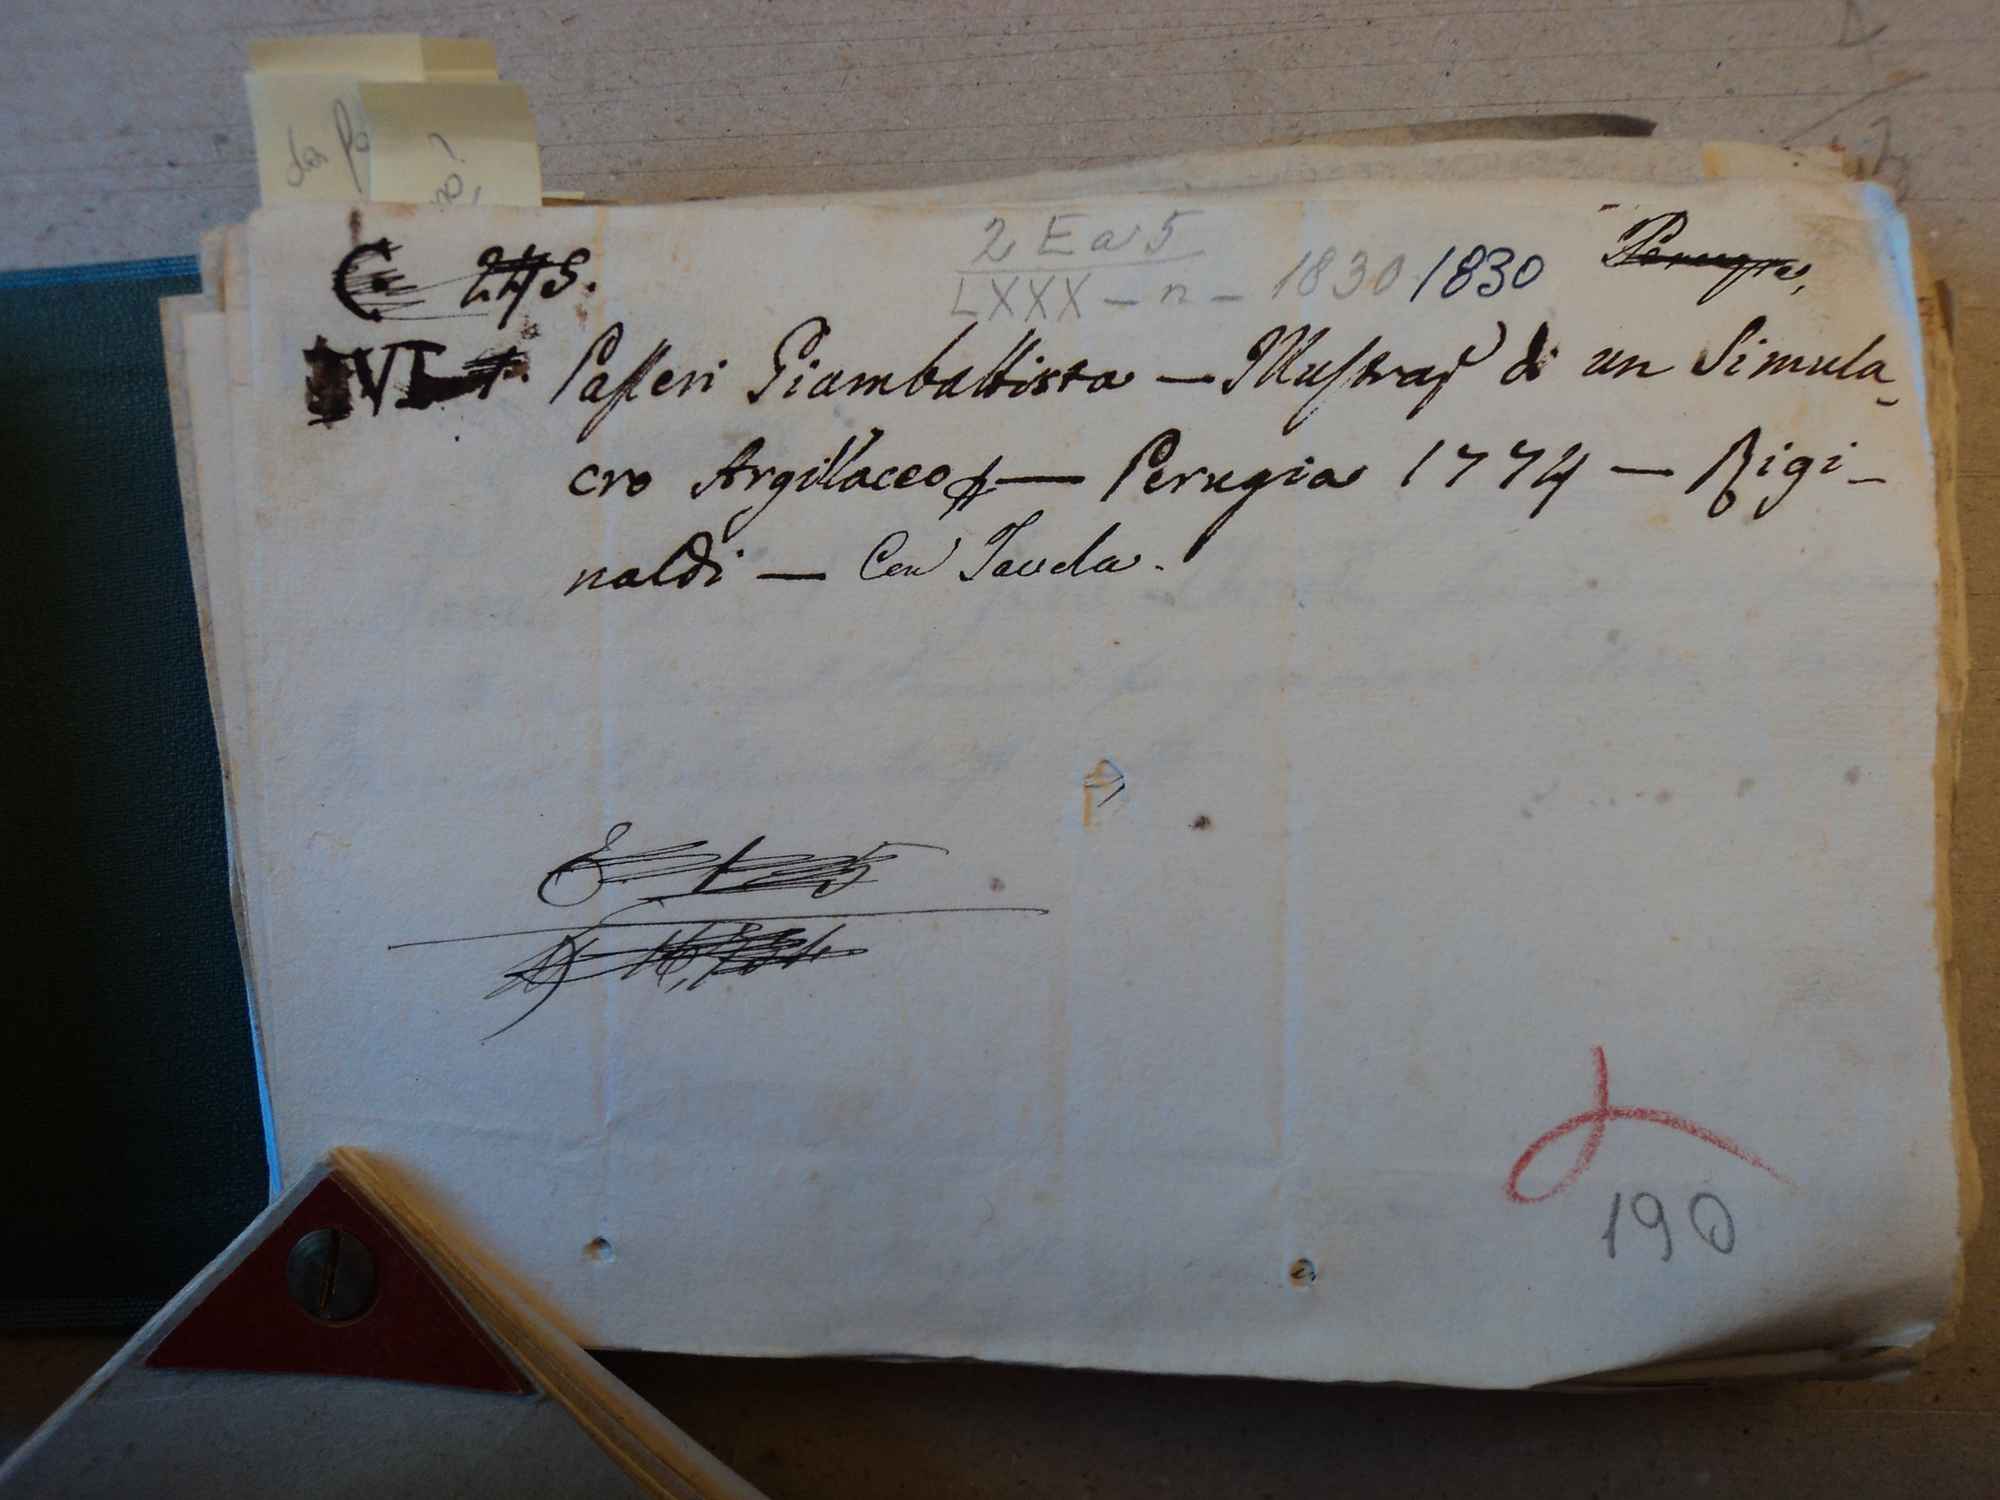 2 E a 5
C 245. LXXX - n - 1830 1830 Perugia,
VI Passeri Giambattista — Illustraz di un Simula-
cro Argillaceo — Perugia 1774 — Rigi-
naldi — Con Tavola.
190